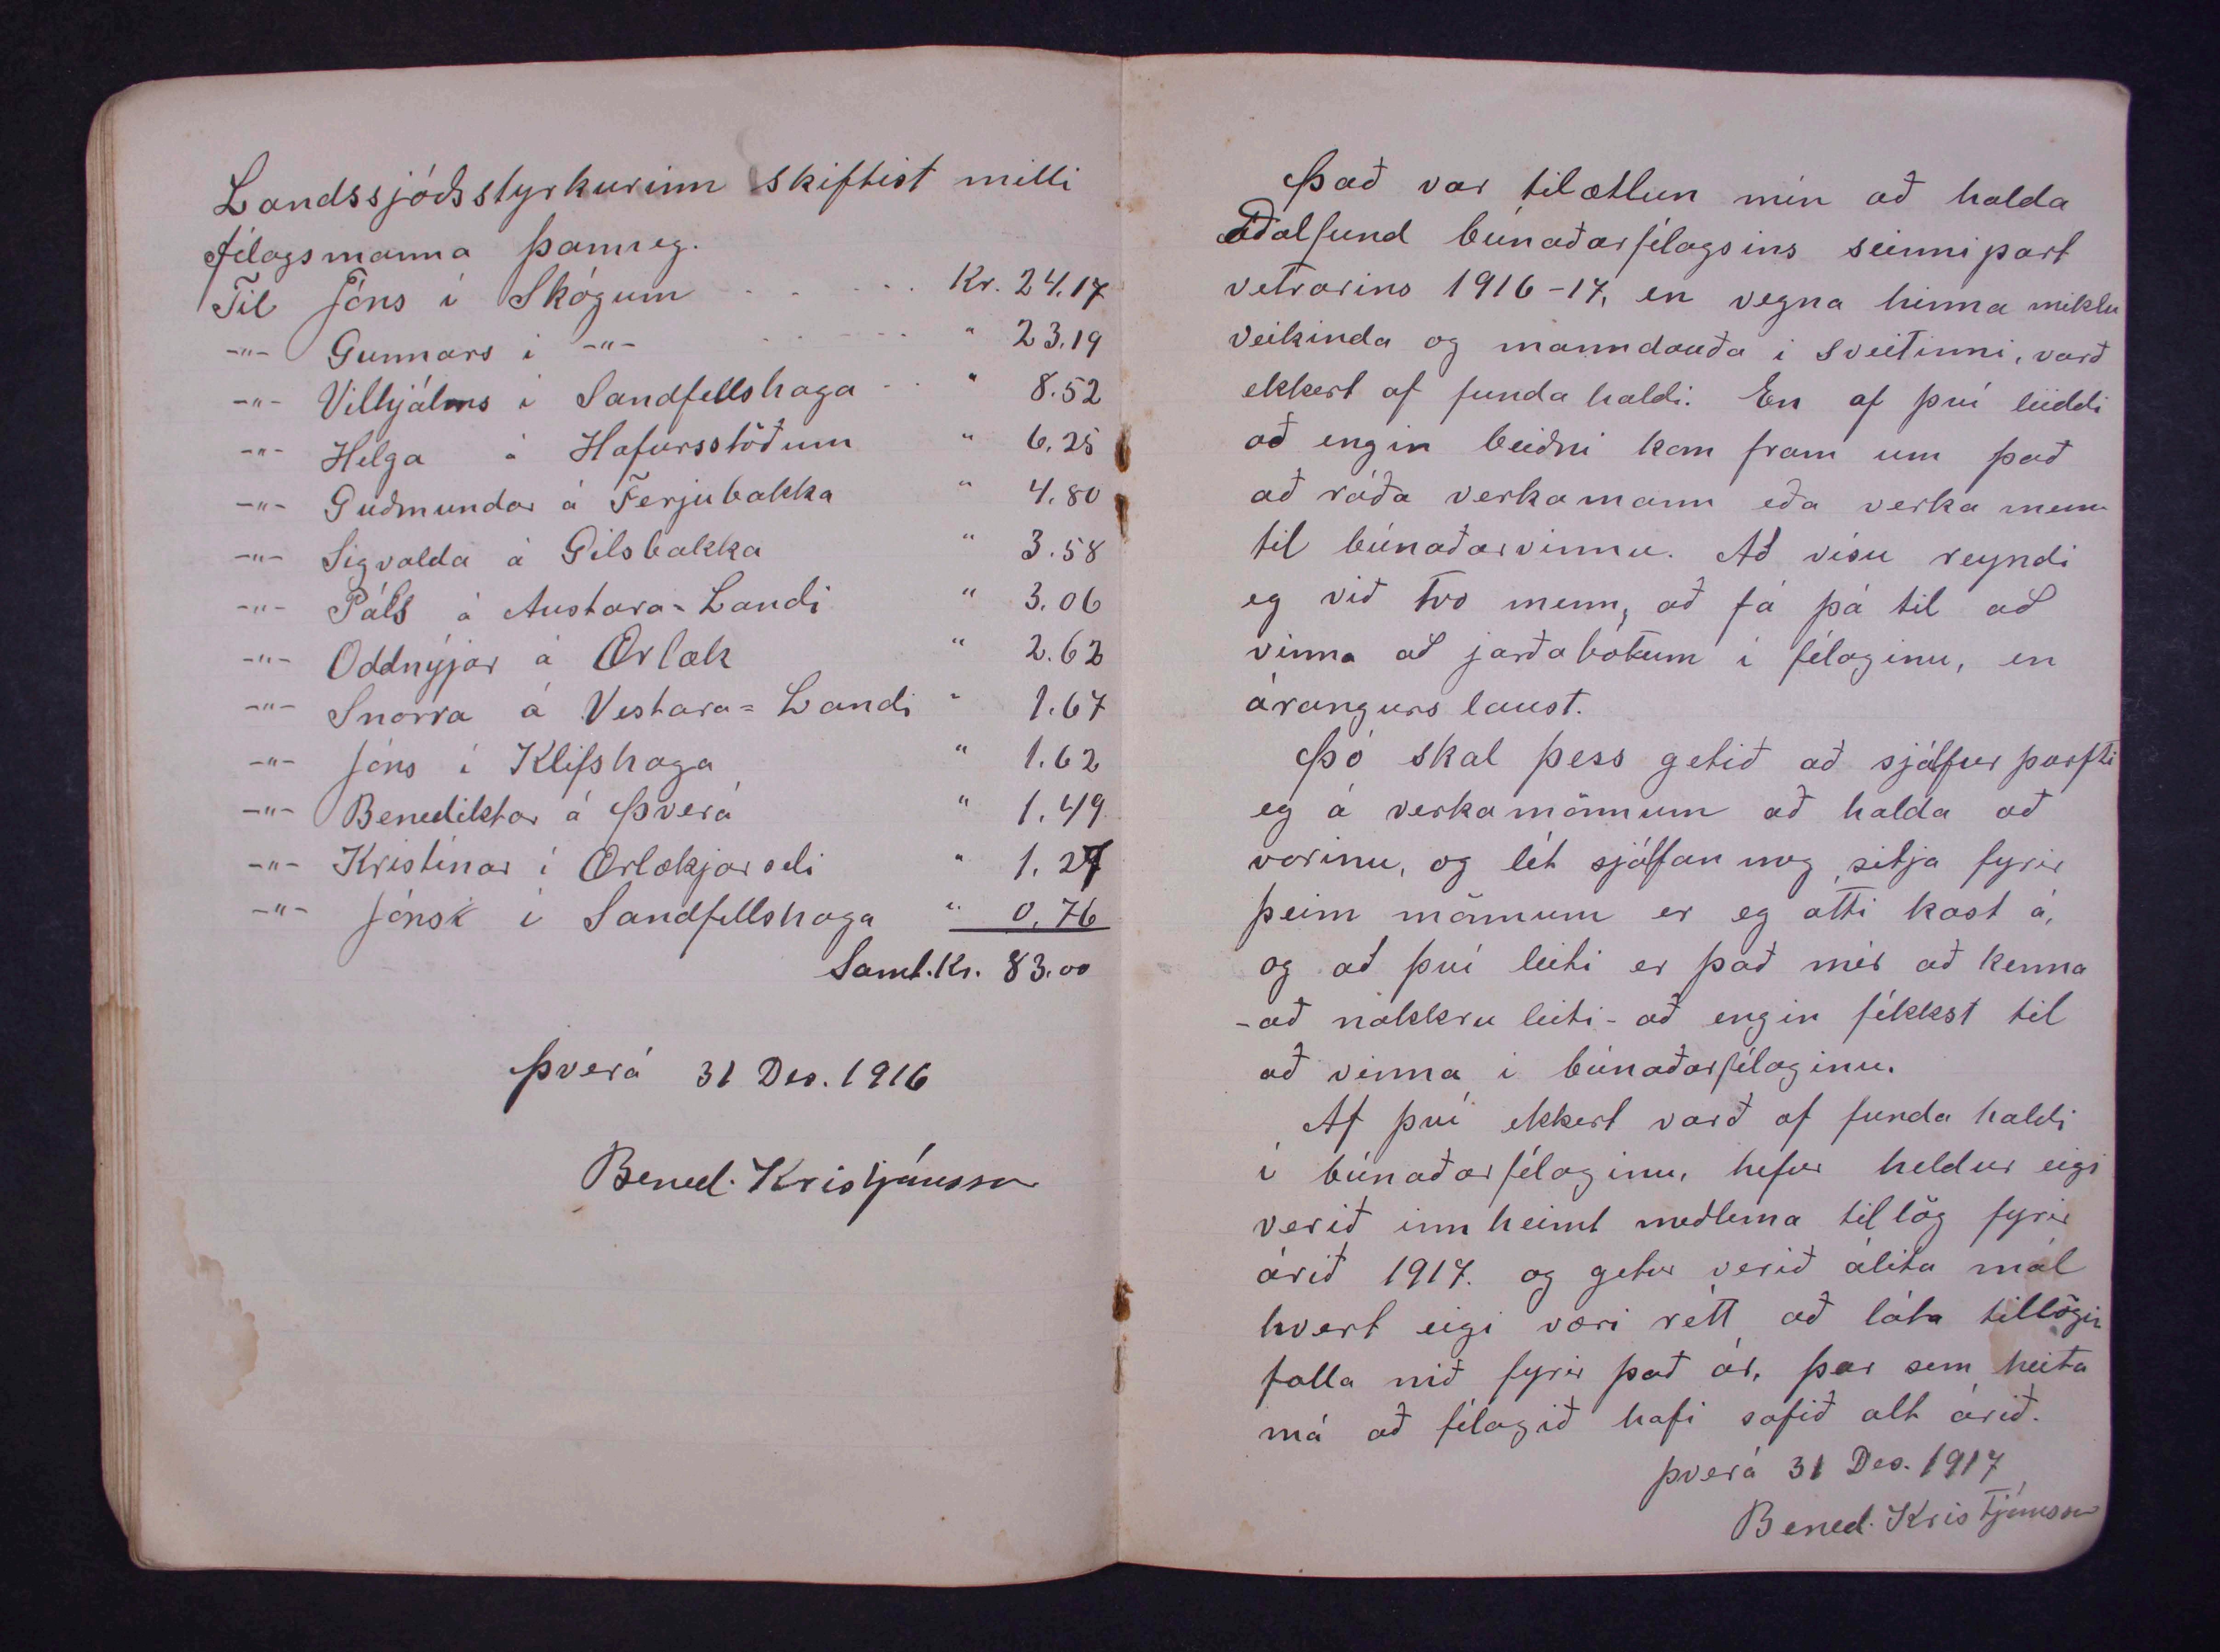 Landssjóðsstyrkurinn skiftist milli
félagsmanna þannig.
Til Jóns í Skógum . . . . . Kr. 24.17
-"- Gunnars í -"- . . . . . " 23.19
-"- Vilhjálms í Sandfellshaga . . " 8.52
-"- Helga á Hafursstöðum " 6.25
-"- Guðmundar á Ferjubakka " 4.80
-"- Sigvalda á Gilsbakka " 3.58
-"- Páls á Austara-Landi " 3.06
-"- Oddnýjar á Ærlæk " 2.62
-"- Snorra á Vestara=Landi " 1.67
-"- Jóns í Klifshaga " 1.62
-"- Benediktar á Þverá " 1.49
-"- Kristínar í Ærlækjarseli " 1.27
-"- Jóns í Sandfellshaga " 0.76
Samt. Kr. 83.00
Þverá 31 Des. 1916
Bened. Kristjánsson
Það var tilætlun mín að halda
aðalfund búnaðarfélagsins seinnipart
vetrarins 1916-17, en vegna hinna miklu
veikinda og manndauða í sveitinni, varð
ekkert af funda haldi. En af því leiddi
að engin beiðni kom fram um það
að ráða verkamann eða verka menn
til búnaðarvinnu. Að vísu reyndi
eg við tvo menn, að fá þá til að
vinna að jarðabótum í félaginu, en
árangurs laust.
Þó skal þess getið að sjálfur þurfti
eg á verkamönnum að halda að
vorinu, og lét sjálfan mig sitja fyrir
þeim mönnum er eg átti kost á,
og að því leiti er það mér að kenna
- að nokkru leiti - að engin fékkst til
að vinna í búnaðarfélaginu.
Af því ekkert varð af funda haldi
í búnaðarfélaginu, hefur heldur eigi
verið inn heimt meðlima tillög fyrir
árið 1917. og getur verið álita mál
hvert eigi væri rétt að láta tillögin
falla nið fyrir það ár, þar sem heita
má að félagið hafi sofið alt árið.
Þverá 31 Des. 1917
Bened. Kristjánsson